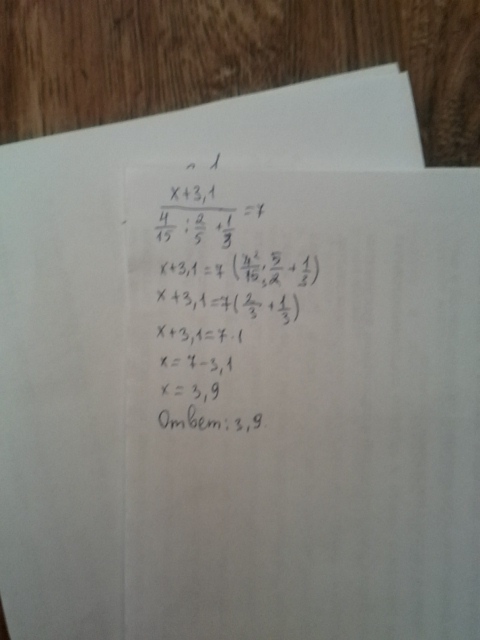 1
x+3,1
4/15 : 2/5 + 1/3 =7
x+3,1=7(4²/15₃ · 5/2 + 1/3)
x+3,1=7(2/3 + 1/3)
x+3,1=7·1
x=7-3,1
x=3,9
Ответ: 3,9